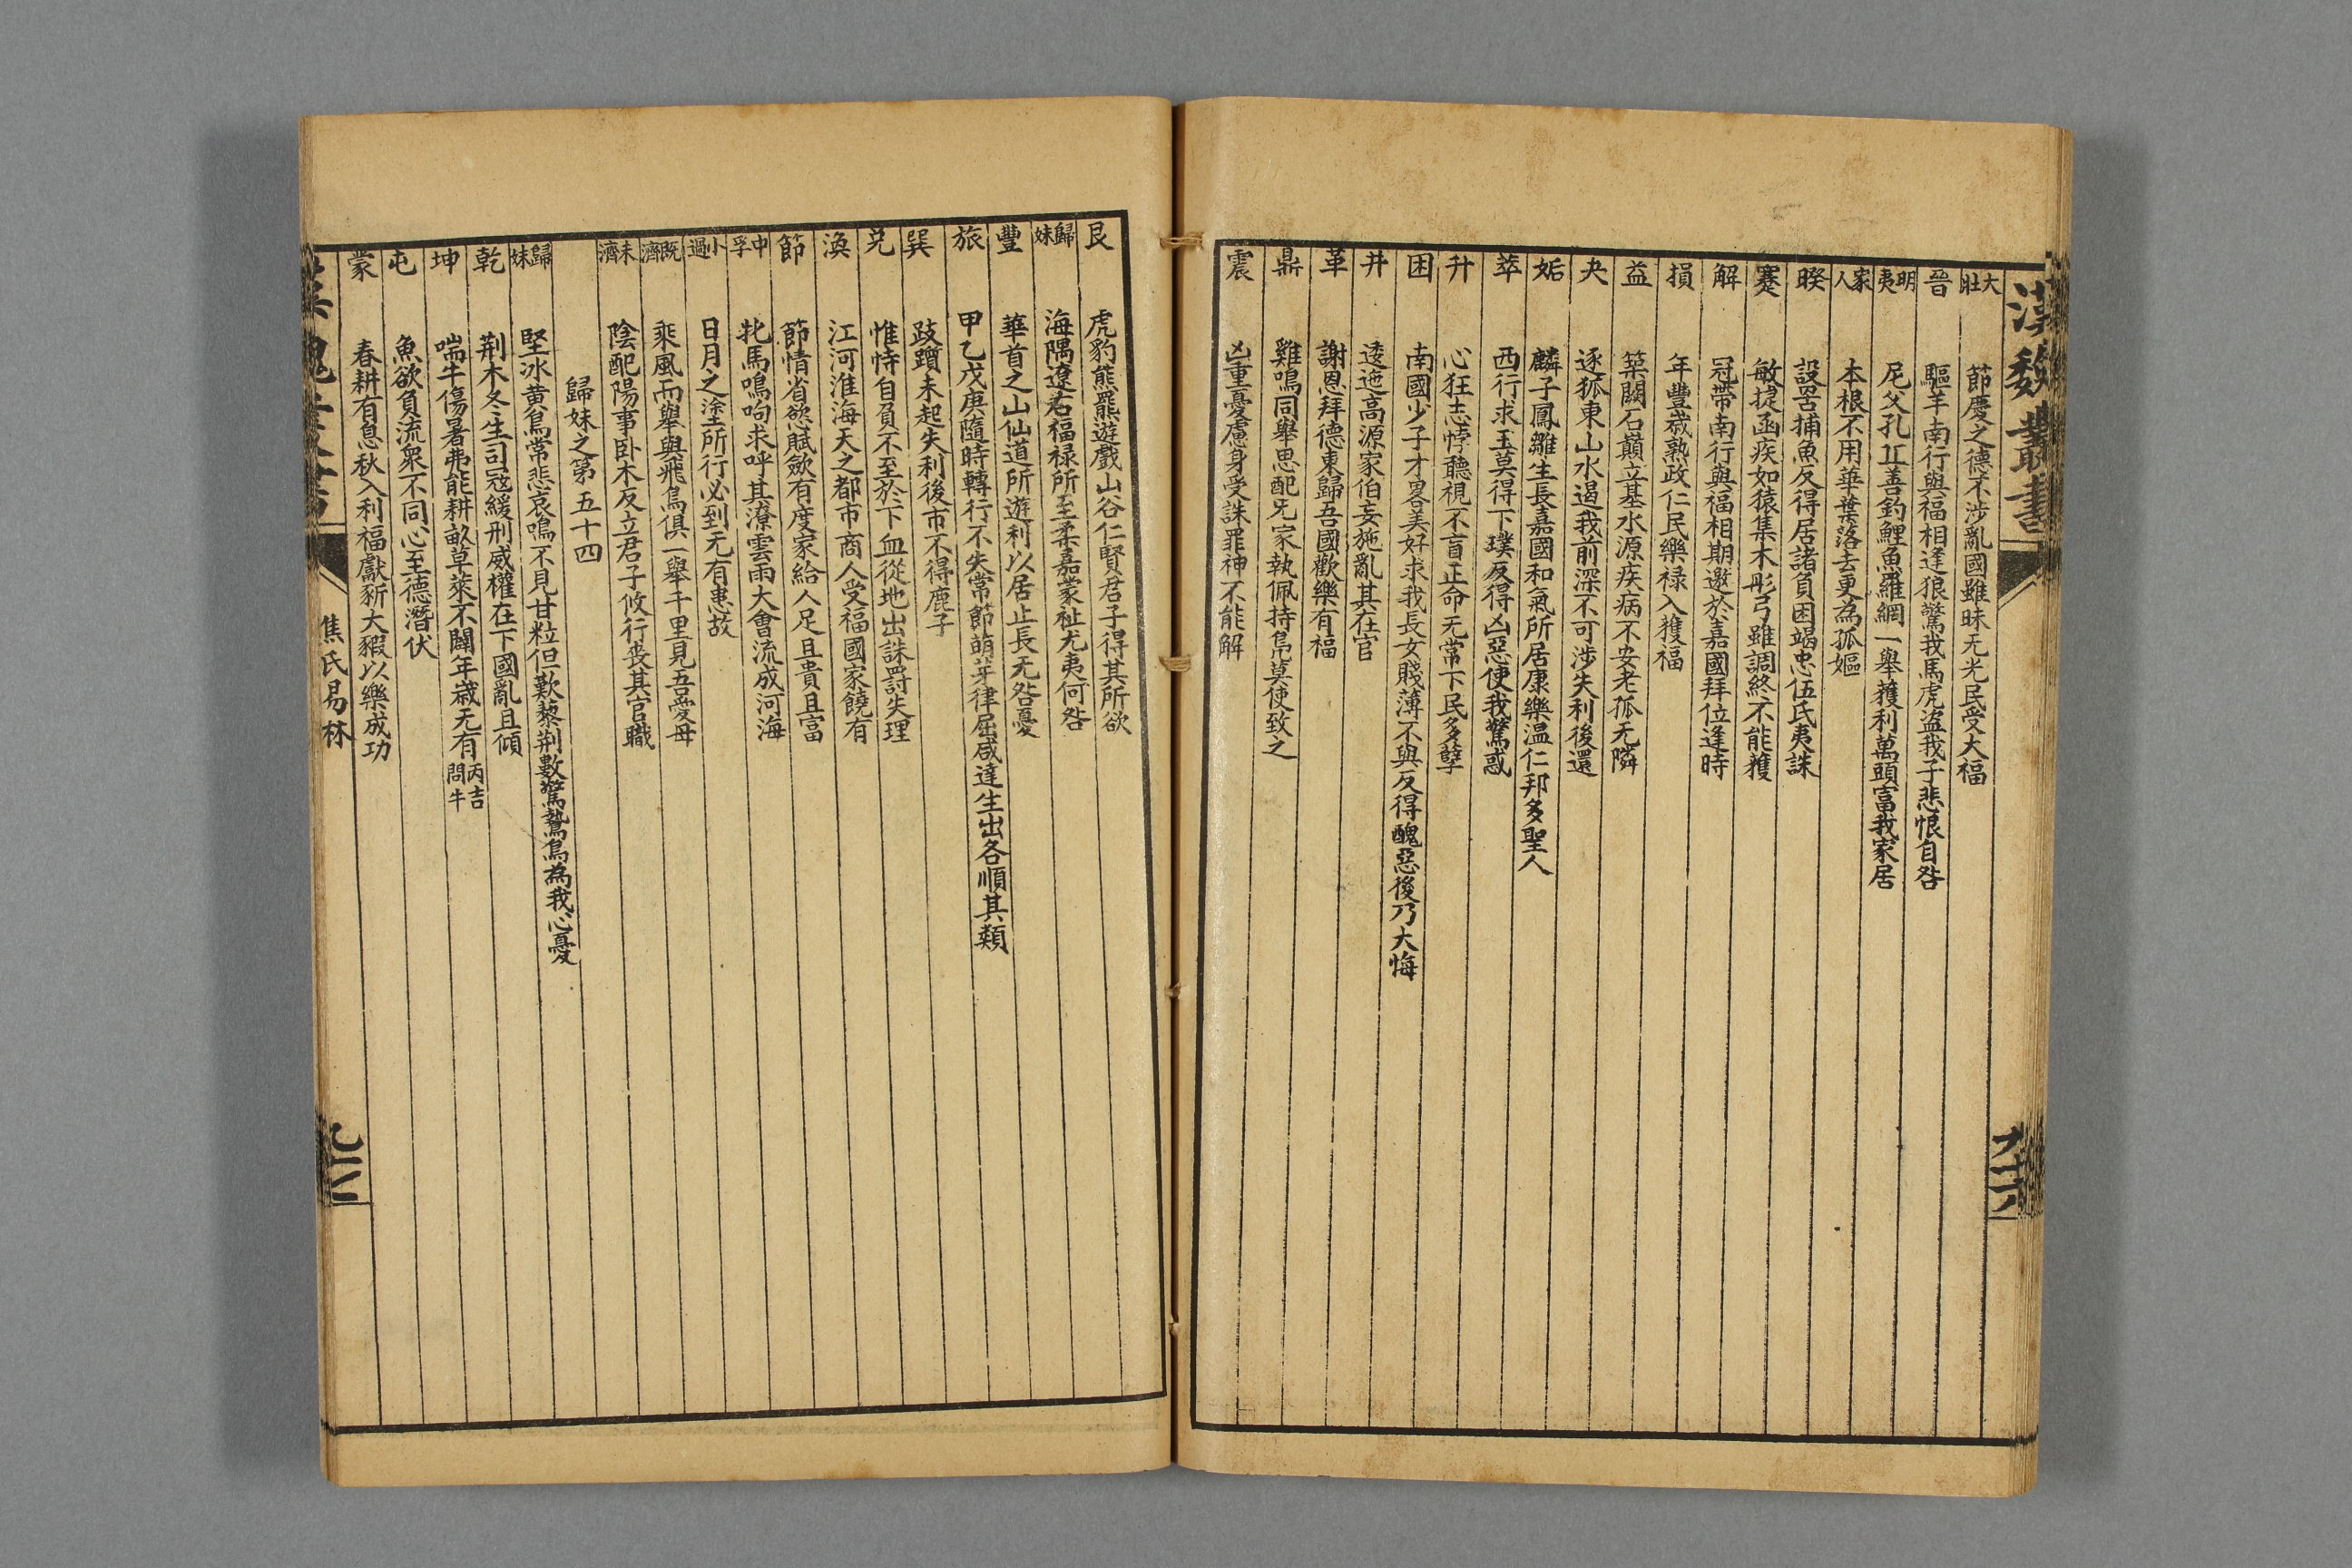 漢魏叢書
大壯 節慶之德不涉亂國雖昧无光民受大福
晉 驅羊南行與福相逢狼驚我馬虎盜我子悲恨自咎
明夷 尼父孔丘善釣鯉魚羅網一舉獲利萬頭富我家居
家人 本根不用華葉落去更為孤嫗
暌 設罟捕魚反得居諸負困竭忠伍氏夷誅
蹇 敏捷亟疾如猿集木彤弓雖調終不能獲
解 冠帶南行與福相期邀於嘉國拜位逢時
損 年豐歲熟政仁民樂祿入獲福
益 築闕石巔立基水源疾病不安老孤无隣
夬 逐狐東山水遏我前深不可涉失利後還
姤 麟子鳳雛生長嘉國和氣所居康樂溫仁邦多聖人
萃 西行求玉莫得下璞反得凶惡使我驚惑
升 心狂志悖聽視不盲正命无常下民多孽
困 南國少子才畧美好求我長女賤薄不與反得醜惡後乃大悔
井 逶迤高源家伯妄施亂其在官
革 謝恩拜德東歸吾國歡樂有福
鼎 雞鳴同舉思配无家執佩持鳧莫使致之
震 凶重憂慮身受誅罪神不能解
艮 虎豹熊羆遊戲山谷仁賢君子得其所欲
歸妹 海隅遼右福祿所至柔嘉蒙祉尤夷何咎
豐 華首之山仙道所遊利以居止長无咎憂
旅 甲乙戊庚隨時轉行不失常節萌芽律屈咸達生出各順其類
巽 跂躓未起失利後市不得鹿子
兌 惟恃自負不至於下血從地出誅罰失理
渙 江河淮海天之都市商人受福國家饒有
節 節情省慾賦歛有度家給人足且貴且富
中孚 牝馬鳴呴求呼其潦雲雨大會流成河海
小過 日月之塗所行必到无有患故
既濟 乘風而舉與飛鳥俱一舉千里見吾愛母
未濟 陰配陽事臥木反立君子攸行喪其官職
歸妹之第五十四
歸妹 堅冰黃鳥常悲哀鳴不見甘粒但歎藜荆數驚鷙鳥為我心憂
乾 荆木冬生司寇緩刑威權在下國亂且傾
坤 喘牛傷暑弗能耕畝草萊不闢年歲无有丙吉問牛
屯 魚欲負流衆不同心至德潛伏
蒙 春耕有息秋入利福獻豣大豭以樂成功
焦氏易林